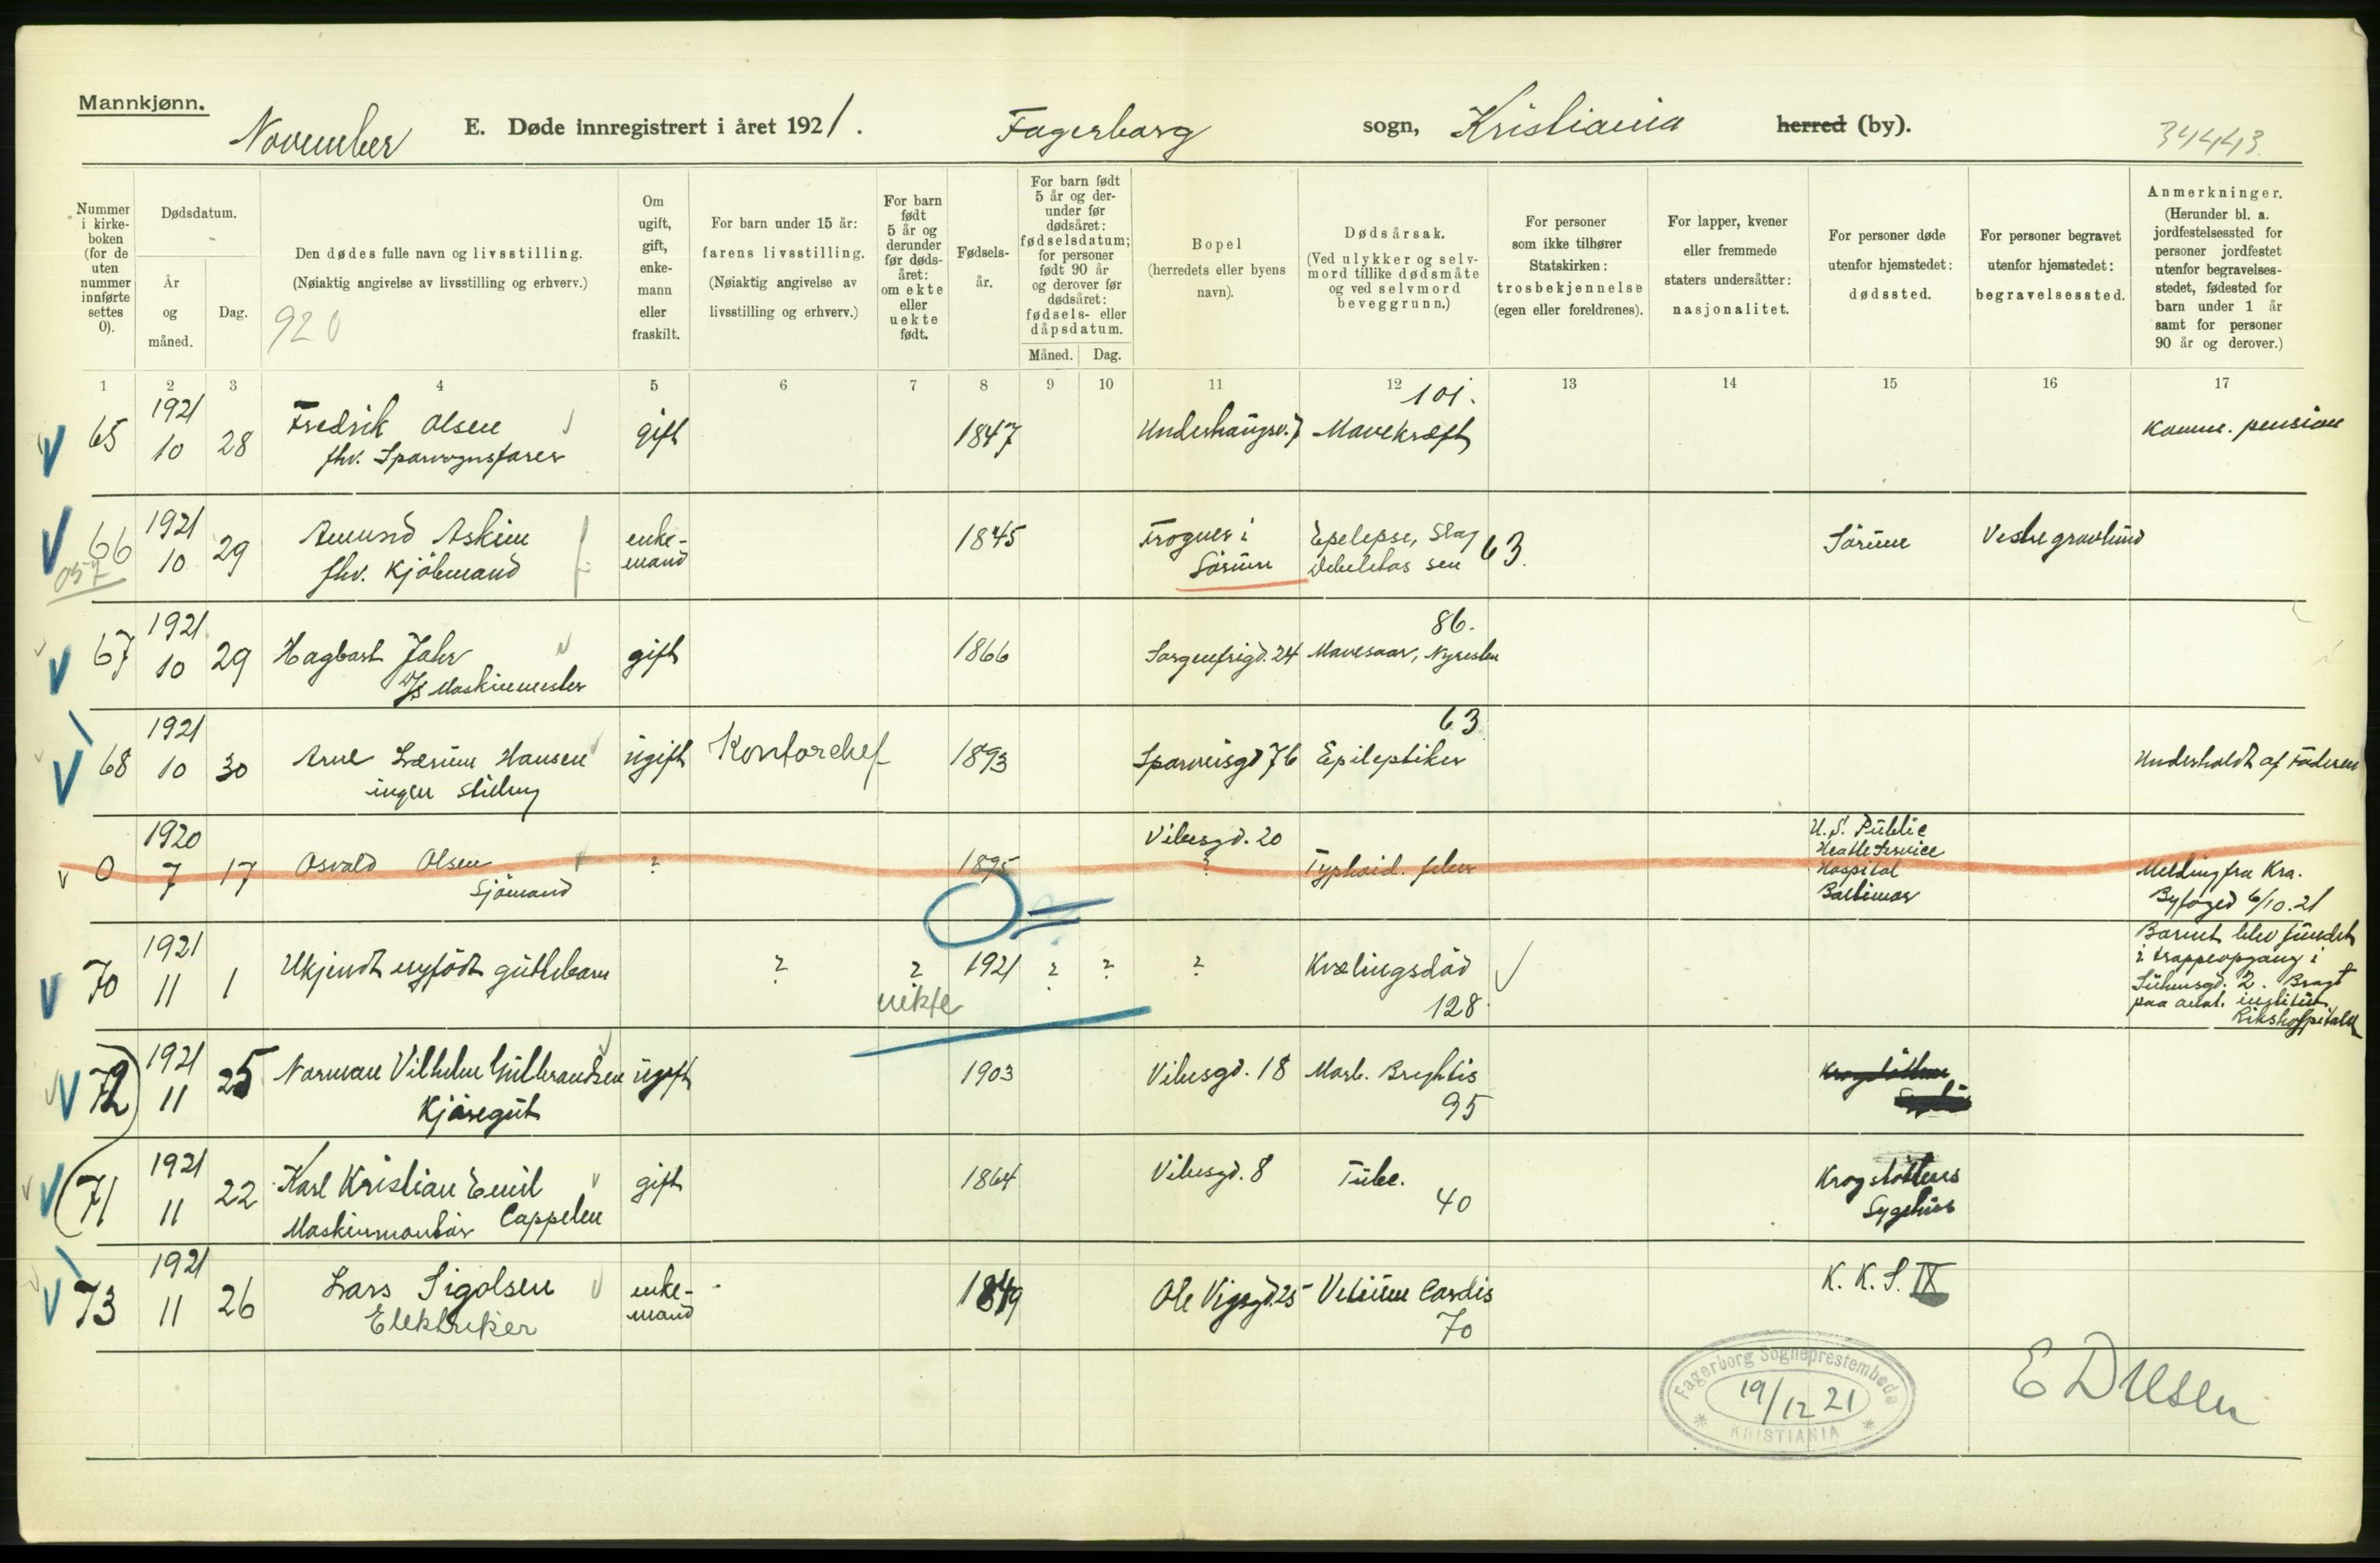 Mannkjønn.
November E. Døde innregistrert i året 1921. Fagerborg sogn, Kristiania herred (by). 34443
Nummer i kirke-boken (for de uten nummer innførte settes 0).
Dødsdatum.
År og måned.
Dag.
Den dødes fulle navn og livsstilling.
(Nøiaktig angivelse av livsstilling og erhverv.)
920
Om ugift, gift, enke-mann eller fraskilt.
For barn under 15 år:
farens livsstilling.
(Nøiaktig angivelse av livsstilling og erhverv.)
For barn født 5 år og derunder før døds-året: om ekte eller uekte født.
Fødsels-år.
For barn født 5 år og der-under før dødsåret: fødselsdatum; for personer født 90 år og derover før dødsåret: fødsels- eller dåpsdatum.
Måned. Dag.
Bopel
(herredets eller byens navn).
Dødsårsak.
(Ved ulykker og selv-mord tillike dødsmåte og ved selvmord beveggrunn.)
For personer som ikke tilhører Statskirken: trosbekjennelse (egen eller foreldrenes).
For lapper, kvener eller fremmede staters undersåtter: nasjonalitet.
For personer døde utenfor hjemstedet: dødssted.
For personer begravet utenfor hjemstedet: begravelsessted.
Anmerkninger.
(Herunder bl. a. jordfestelsessted for personer jordfestet utenfor begravelses-stedet, fødested for barn under 1 år samt for personer 90 år og derover.)
1 2 3 4 5 6 7 8 9 10 11 12 13 14 15 16 17
1921 101.
65 10 28 Fredrik Olsen gift 1847 Underhaugsv. 7 Mavekræft Komm. pension
fhv. Sporvognsfører
1921
66 10 29 Amund Askim enke-mand 1845 Frogner i Sörum Epelepse, Slag 63. Sörum Vestre gravlund
fhv. Kjöbmand Debelitas sen
1921 86.
67 10 29 Hagbart Jahr gift 1866 Sorgenfrigd. 24 Mavesaar,
Maskinmester
1921 63
68 10 30 Arne Lærum Hansen ugift Kontorchef 1893 Sporveisgd 76 Epileptiker Underholdt af Faderen
ingen stilling
1920 Vibesgd. 20 U. S. Public
0 7 17 Osvald Olsen ? 1895 ? Typhoid. feber Health Service Hospital Melding fra Kra.
Sjömand Baltimor Byfoged 6/10. 21
1921
70 11 1 Ukjendt nyfödt guttebarn ? ? 1921 ? ? ? Kvælingsdöd
uekte 128
Barnet blev fundet
i trappeopgang i
Suhmsgd. 2. Bragt
paa anat. institut
Rikshospitalet
1921
72 11 25 Norman Vilhelm Gulbrandsen ugift 1903 Vibesgd. 18 Morb. Brightis
Kjöregut 95
1921
71 11 22 Karl Kristian Emil gift 1864 Vibesgd. 8 Tube. Krogstöttens
Maskinmontör Cappelen 40 Sygehus
1921
73 11 26 Lars Sigolsen enke-mand 1849 Ole Vigsgd. 25 Vitium Cordis K. K. S. IX
Elektriker 70
Fagerborg Sogneprestembede
19/12 21
KRISTIANIA